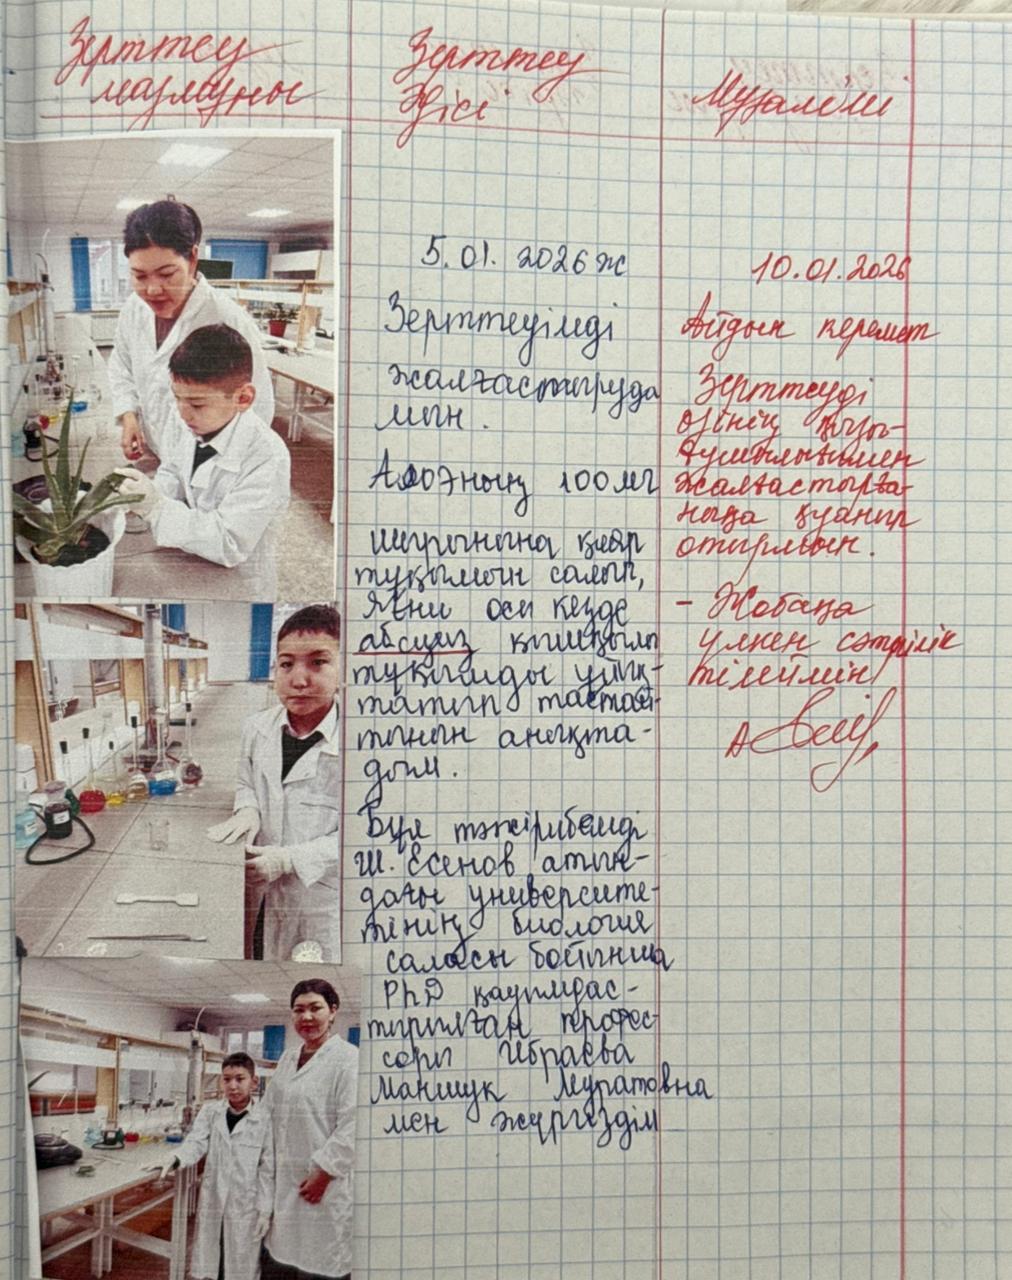 Зерттеу
мазмұны
Зерттеу
әдісі
Мұғалімі
5.01.2026ж
Зерттеуімді
жалғастыруда
мын.
Алоэның 100мг
шырынына қияр
тұқымын салып,
яғни осы кезде
абсциз қышқылы
тұқымды ұйық-
татып тастай-
тынын анықта-
дым.
Бұл тәжірибемді
Ш. Есенов атын-
дағы университе-
тінің биология
саласы бойынша
PhD қауымдас-
тырылған профес-
соры Ибраева
Маншук Муратовна
мен жүргіздім
10.01.2026
Айдын керемет
Зерттеуді
өзінің қызы-
ғушылығымен
жалғастырға-
ныңа қуанып
отырмын.
- Жобаңа
үлкен сәттілік
тілеймін